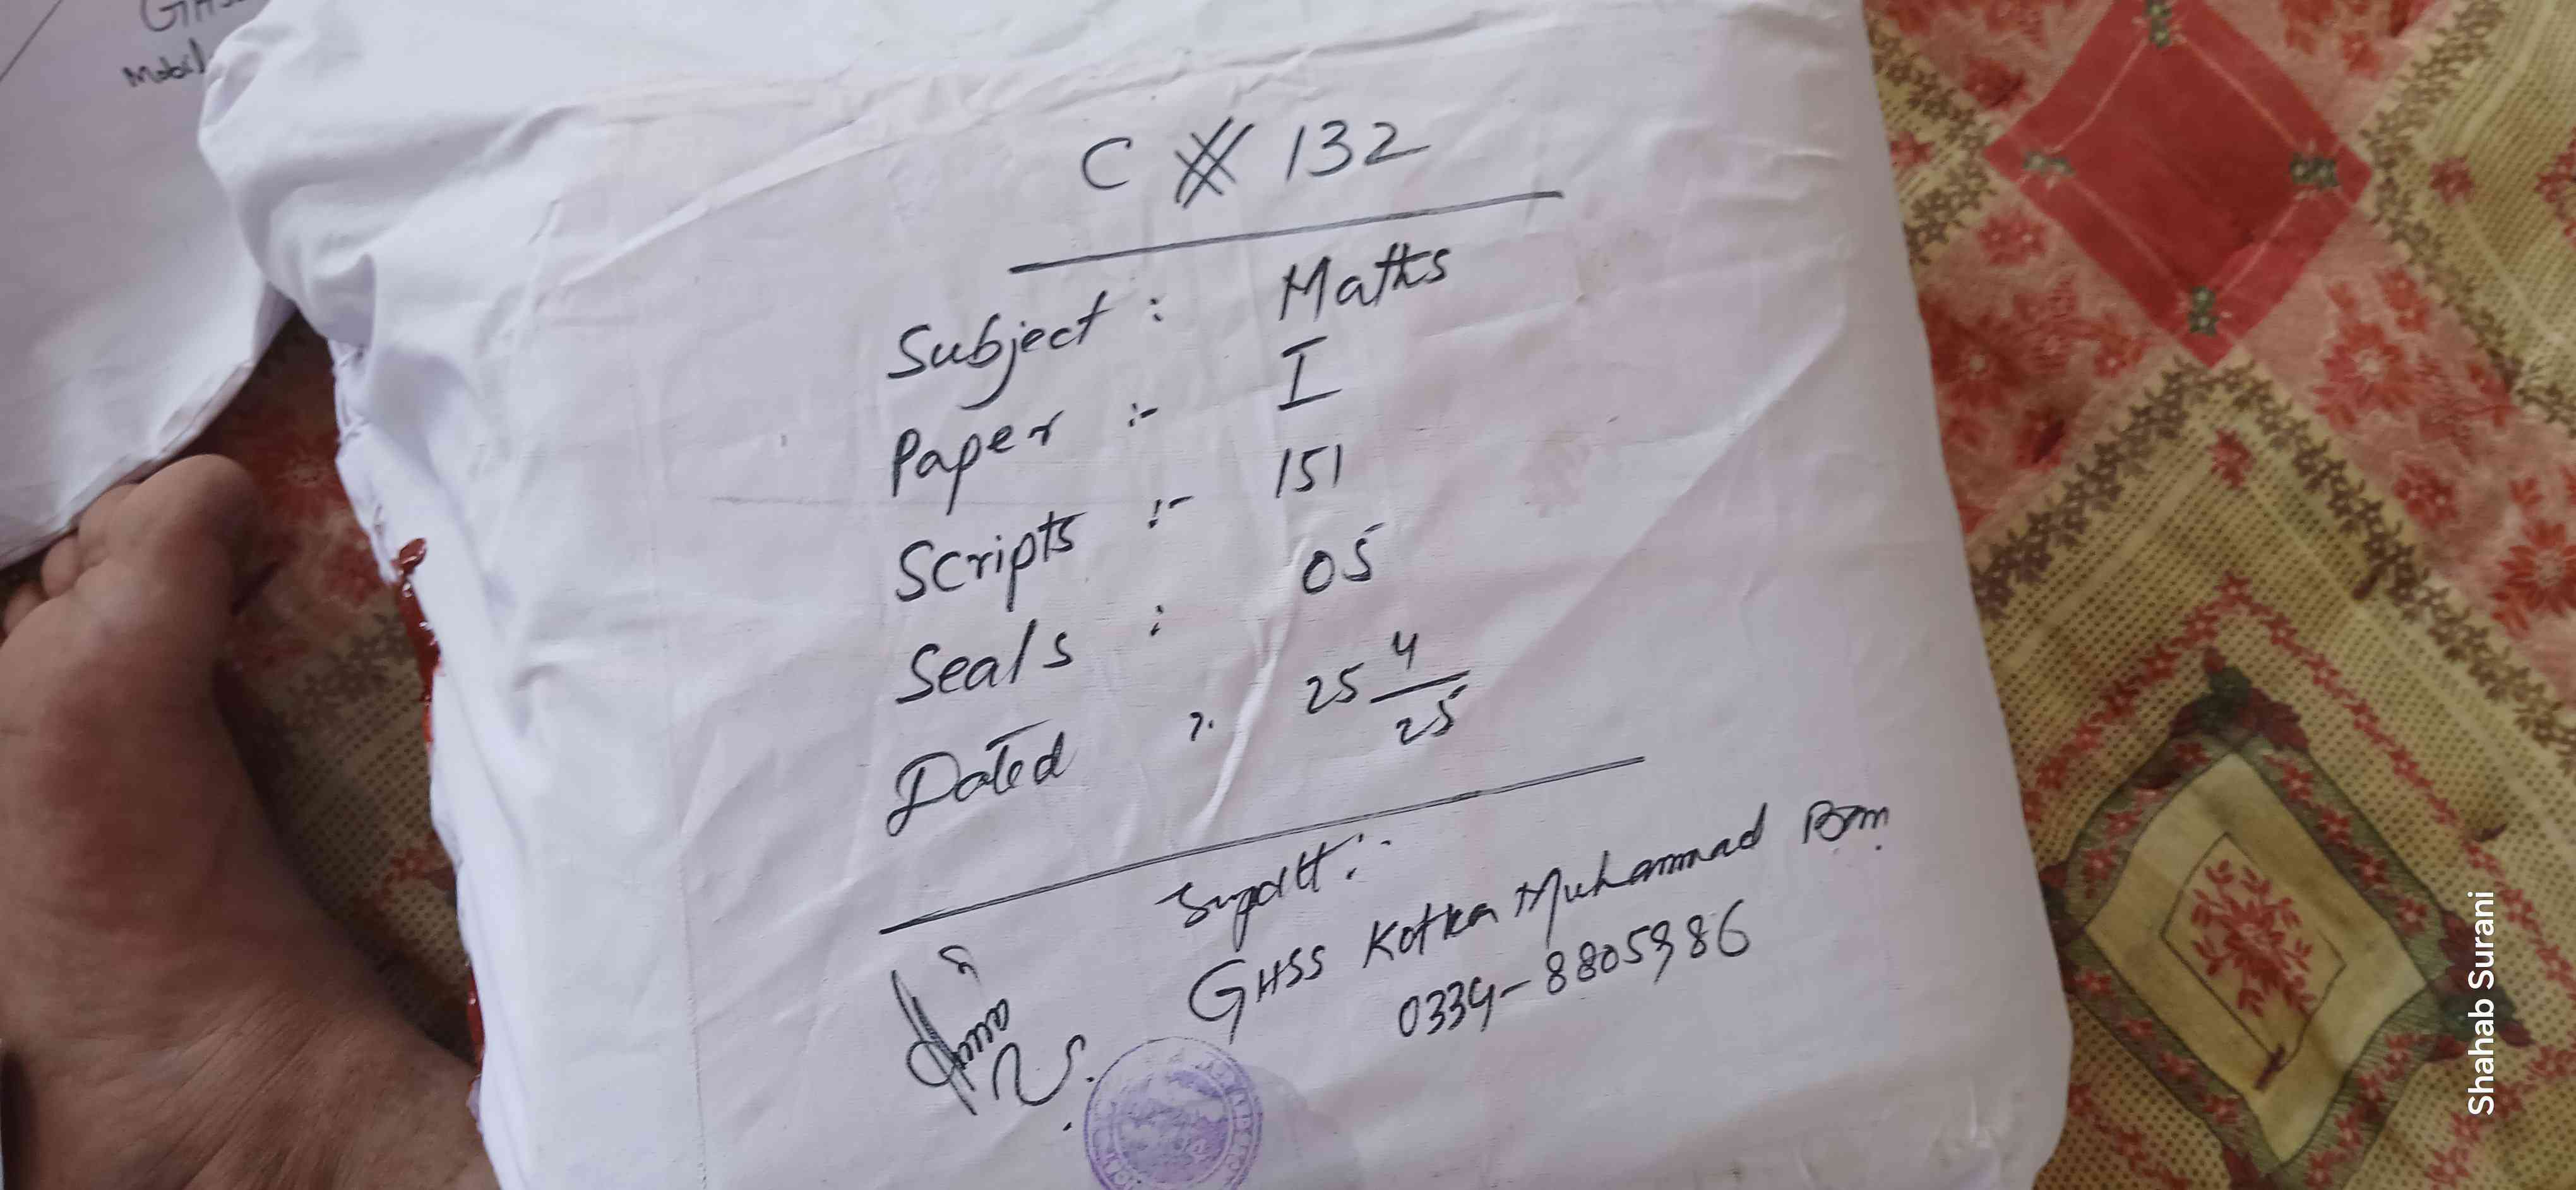 GHS
Mobil
C # 132
Subject : Maths
Paper :- I
Scripts :- 151
Seals : 05
Dated :. 25 4/25
Supdtt:-
GHSS Kotka Muhammad
0334-8805986
Shahab Surani